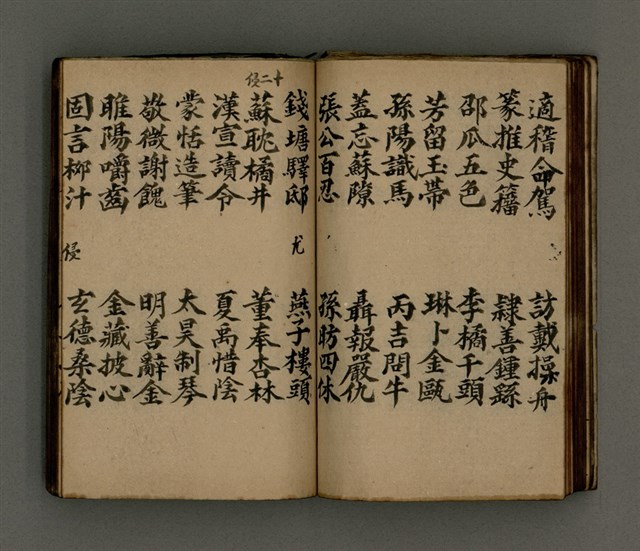 適稽命駕 訪戴操舟
篆推史籀 隸善鍾繇
邵瓜五色 李橘千頭
芳留玉帶 琳卜金甌
孫陽識馬 丙吉問牛
蓋忘蘇隙 聶報嚴仇
張公百忍 孫昉四休
錢塘驛邸 燕子樓頭
尤
十二侵
蘇耽橘井 董奉杏林
漢宣讀令 夏禹惜陰
蒙恬造筆 太昊制琴
敬微謝餽 明善辭金
睢陽嚼齒 金藏披心
固言柳汁 玄德桑陰
侵